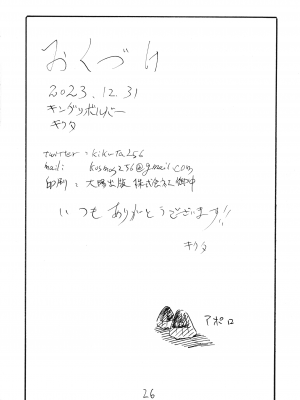 おくづけ
2023.12.31
キングリボルバー
キクタ
twitter : kikuta256
mail: kosmos256@gmail.com
印刷 : 大陽出版株式会社 御中
いつもありがとうございます!!
キクタ
アポロ
26